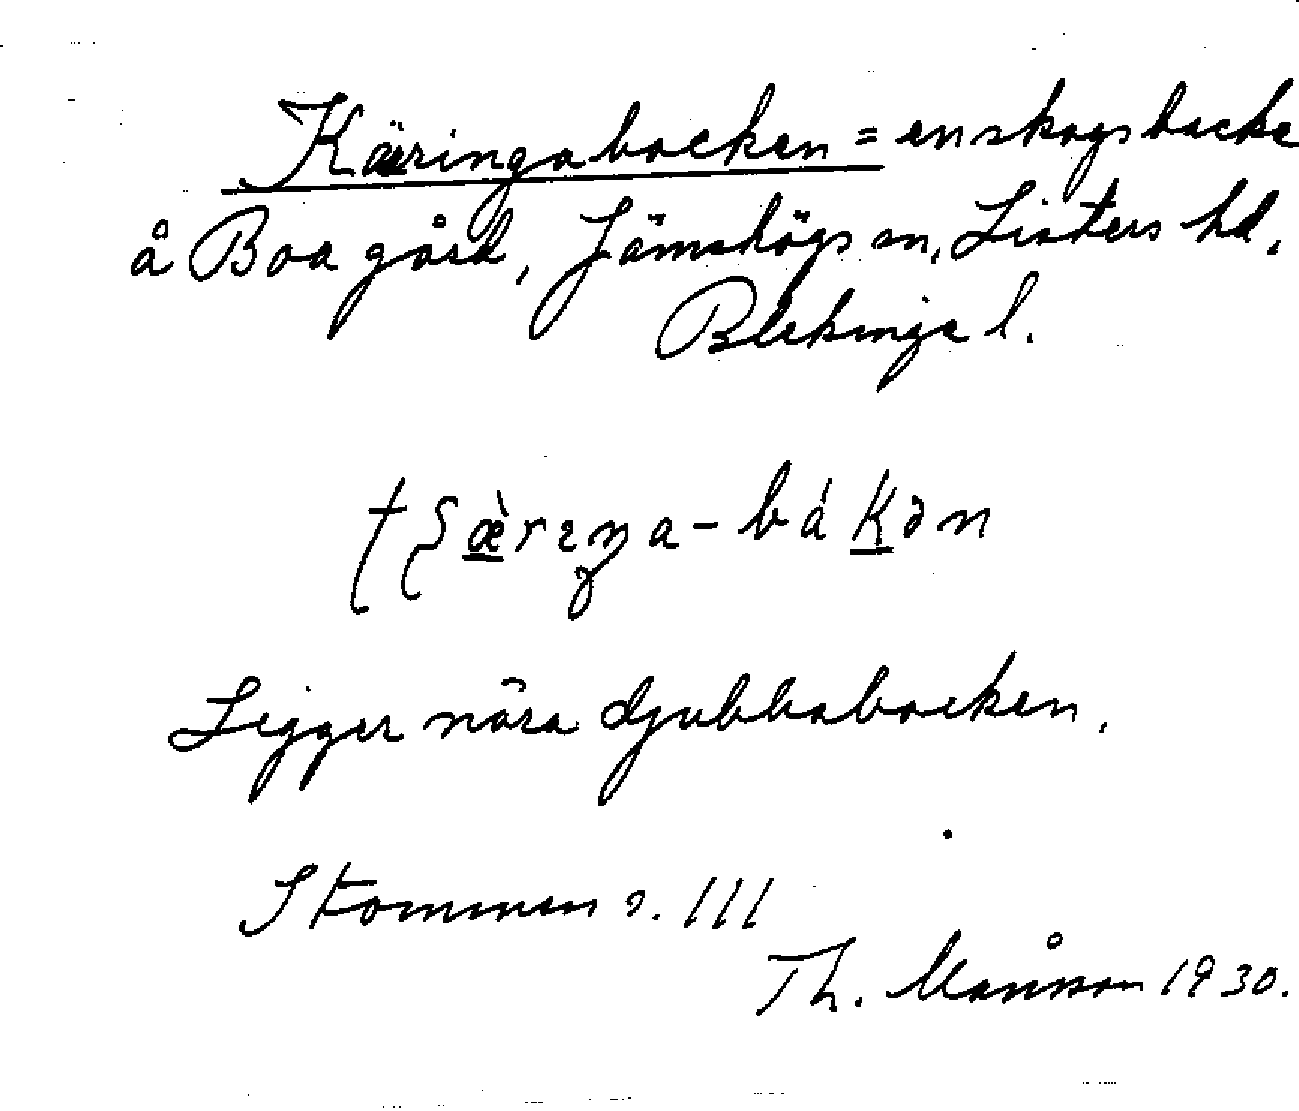 Käringabacken = en skogsbacke
å Boa gård, Jämshögs sn, Listers hd.
Blekinge l.
tʃæ̀rıŋa-bákən
Ligger nära djubbabacken.
Stommen s. 111
Th. Månsson 1930.